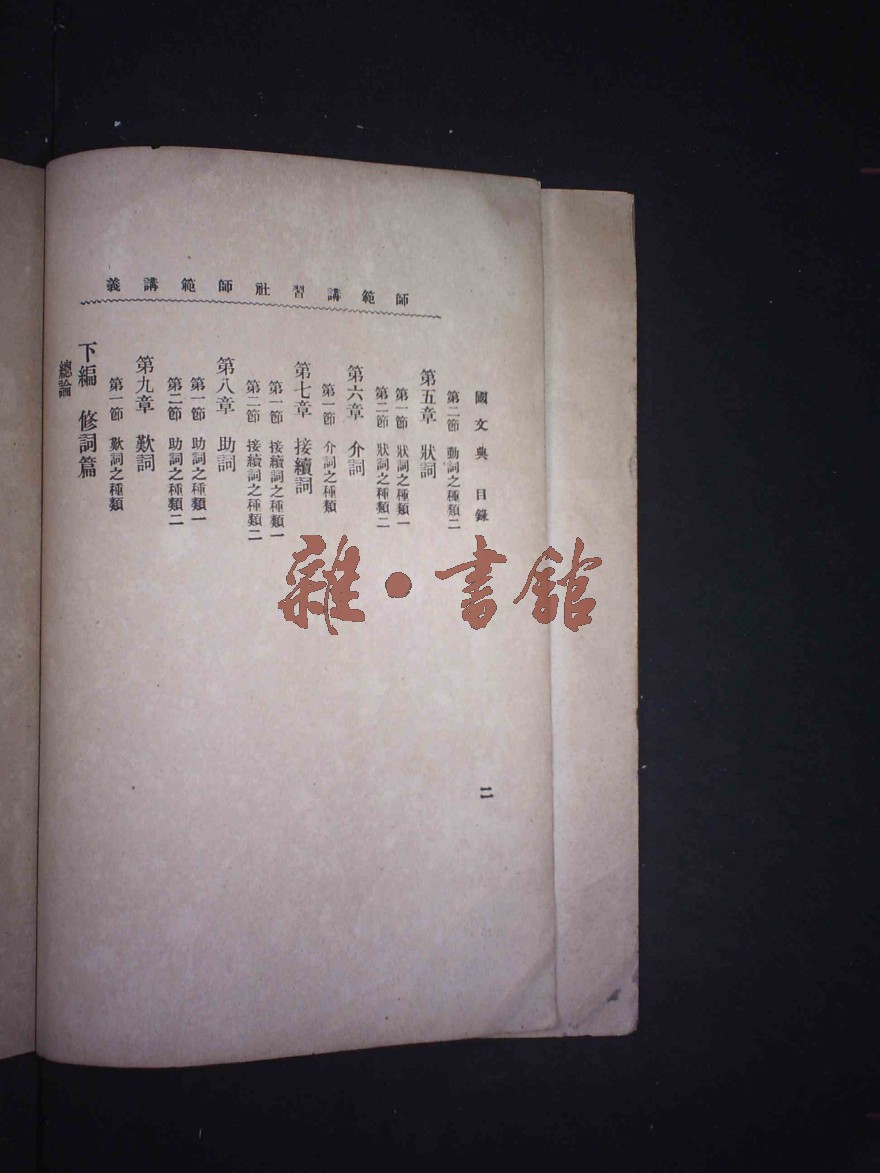 師範講習社師範講義
國文典 目錄
第二節 動詞之種類二
第五章 狀詞
第一節 狀詞之種類一
第二節 狀詞之種類二
第六章 介詞
第一節 介詞之種類
第七章 接續詞
第一節 接續詞之種類一
第二節 接續詞之種類二
第八章 助詞
第一節 助詞之種類一
第二節 助詞之種類二
第九章 歎詞
第一節 歎詞之種類
下編 修詞篇
總論
二
雜·書館